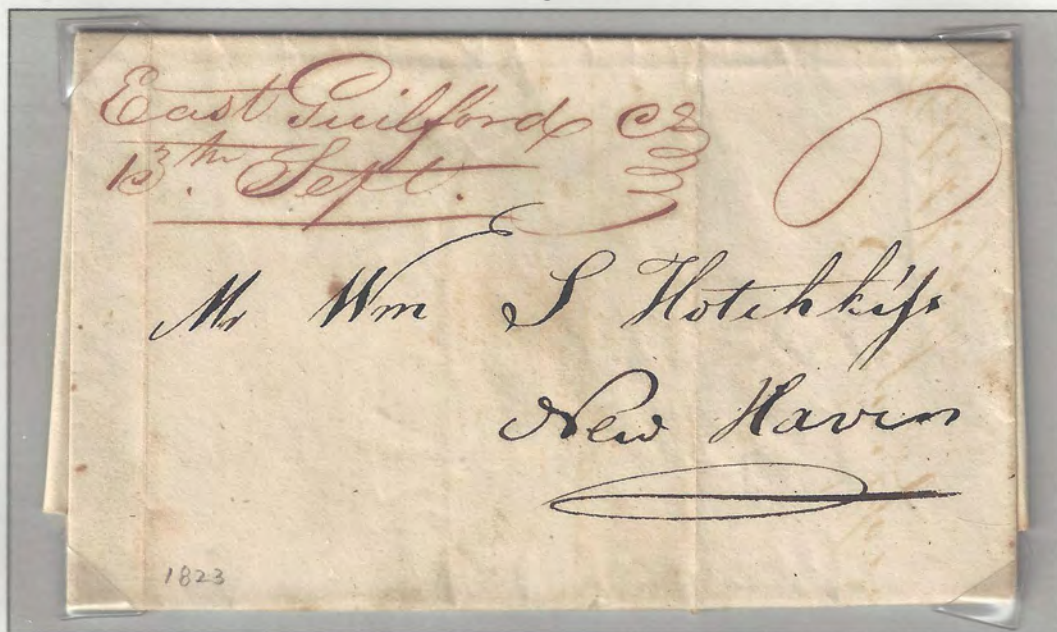 East Guilford Ct 6
13th. Sept.
Mr Wm S Hotchkiſs
New Haven
1823